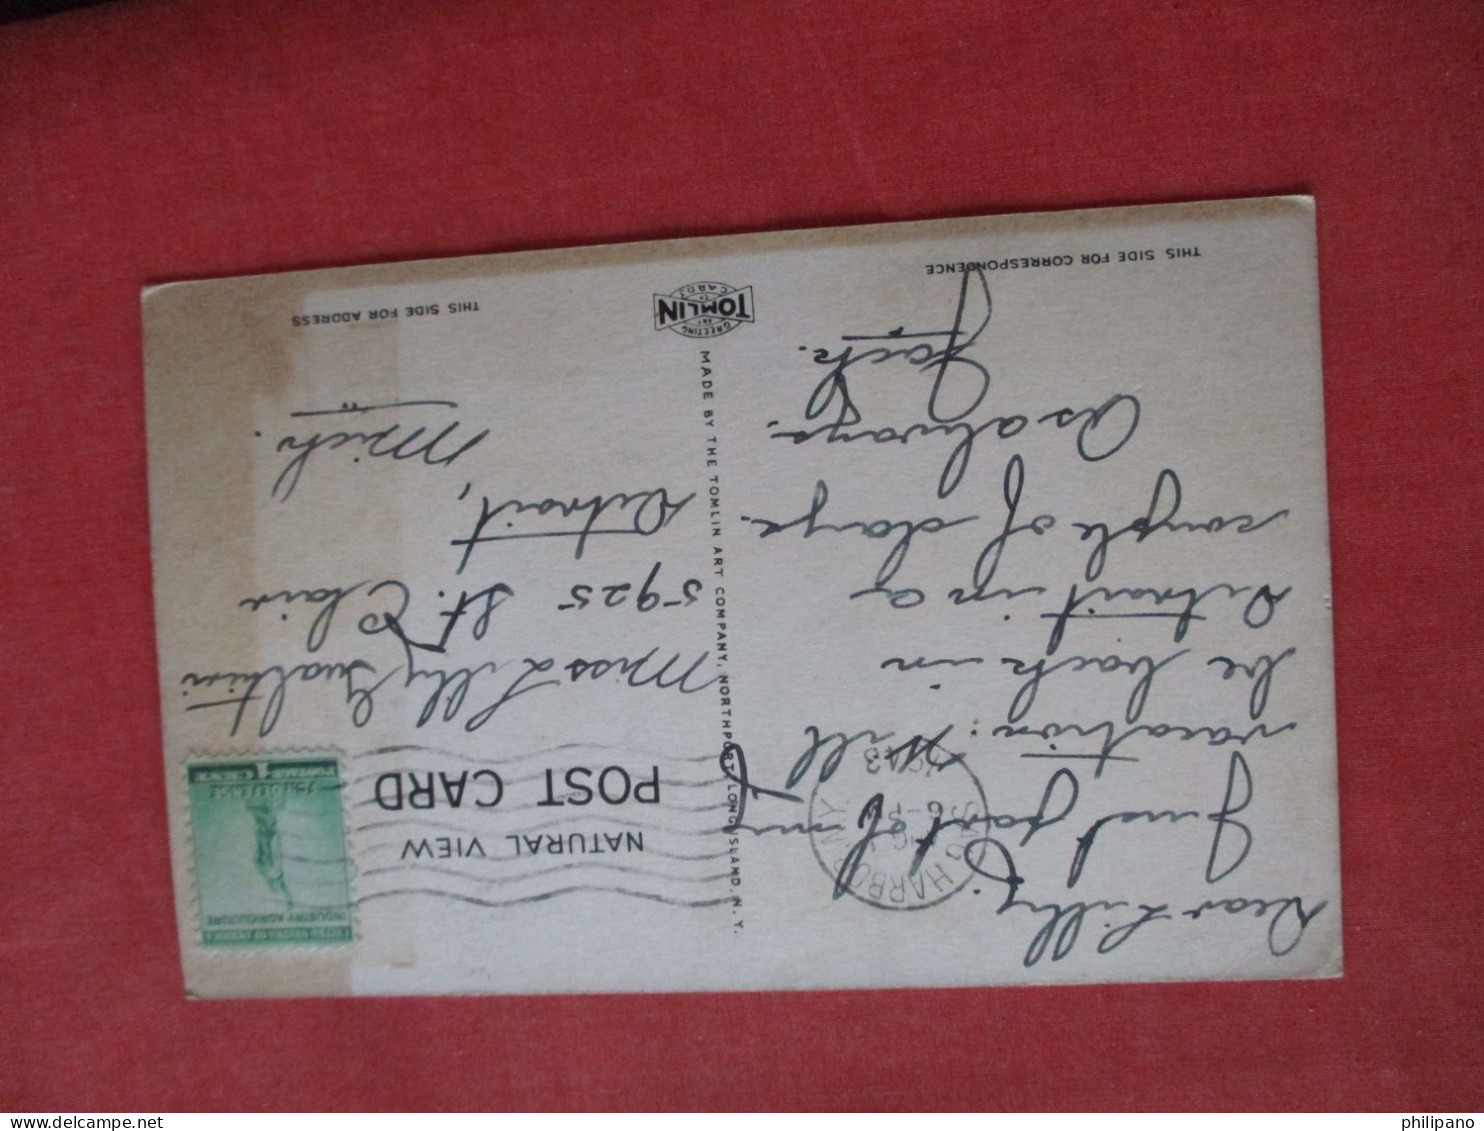 THIS SIDE FOR CORRESPONDENCE
Dear Lilly;
Just part of my
vacation. Will
be back in
Detroit in a
couple of days.
As always.
Jack.
SAG HARBOR N.Y.
1943
MADE BY THE TOMLIN ART COMPANY, NORTHPORT, LONG ISLAND, N. Y.
GREETING
ART
TOMLIN
CARDS
NATURAL VIEW
POST CARD
UNITED STATES OF AMERICA
INDUSTRY AGRICULTURE
FOR DEFENSE
1 CENT
POSTAGE
Miss Lilly Gualtieri
5925 St. Clair
Detroit,
Mich.
THIS SIDE FOR ADDRESS
philipano